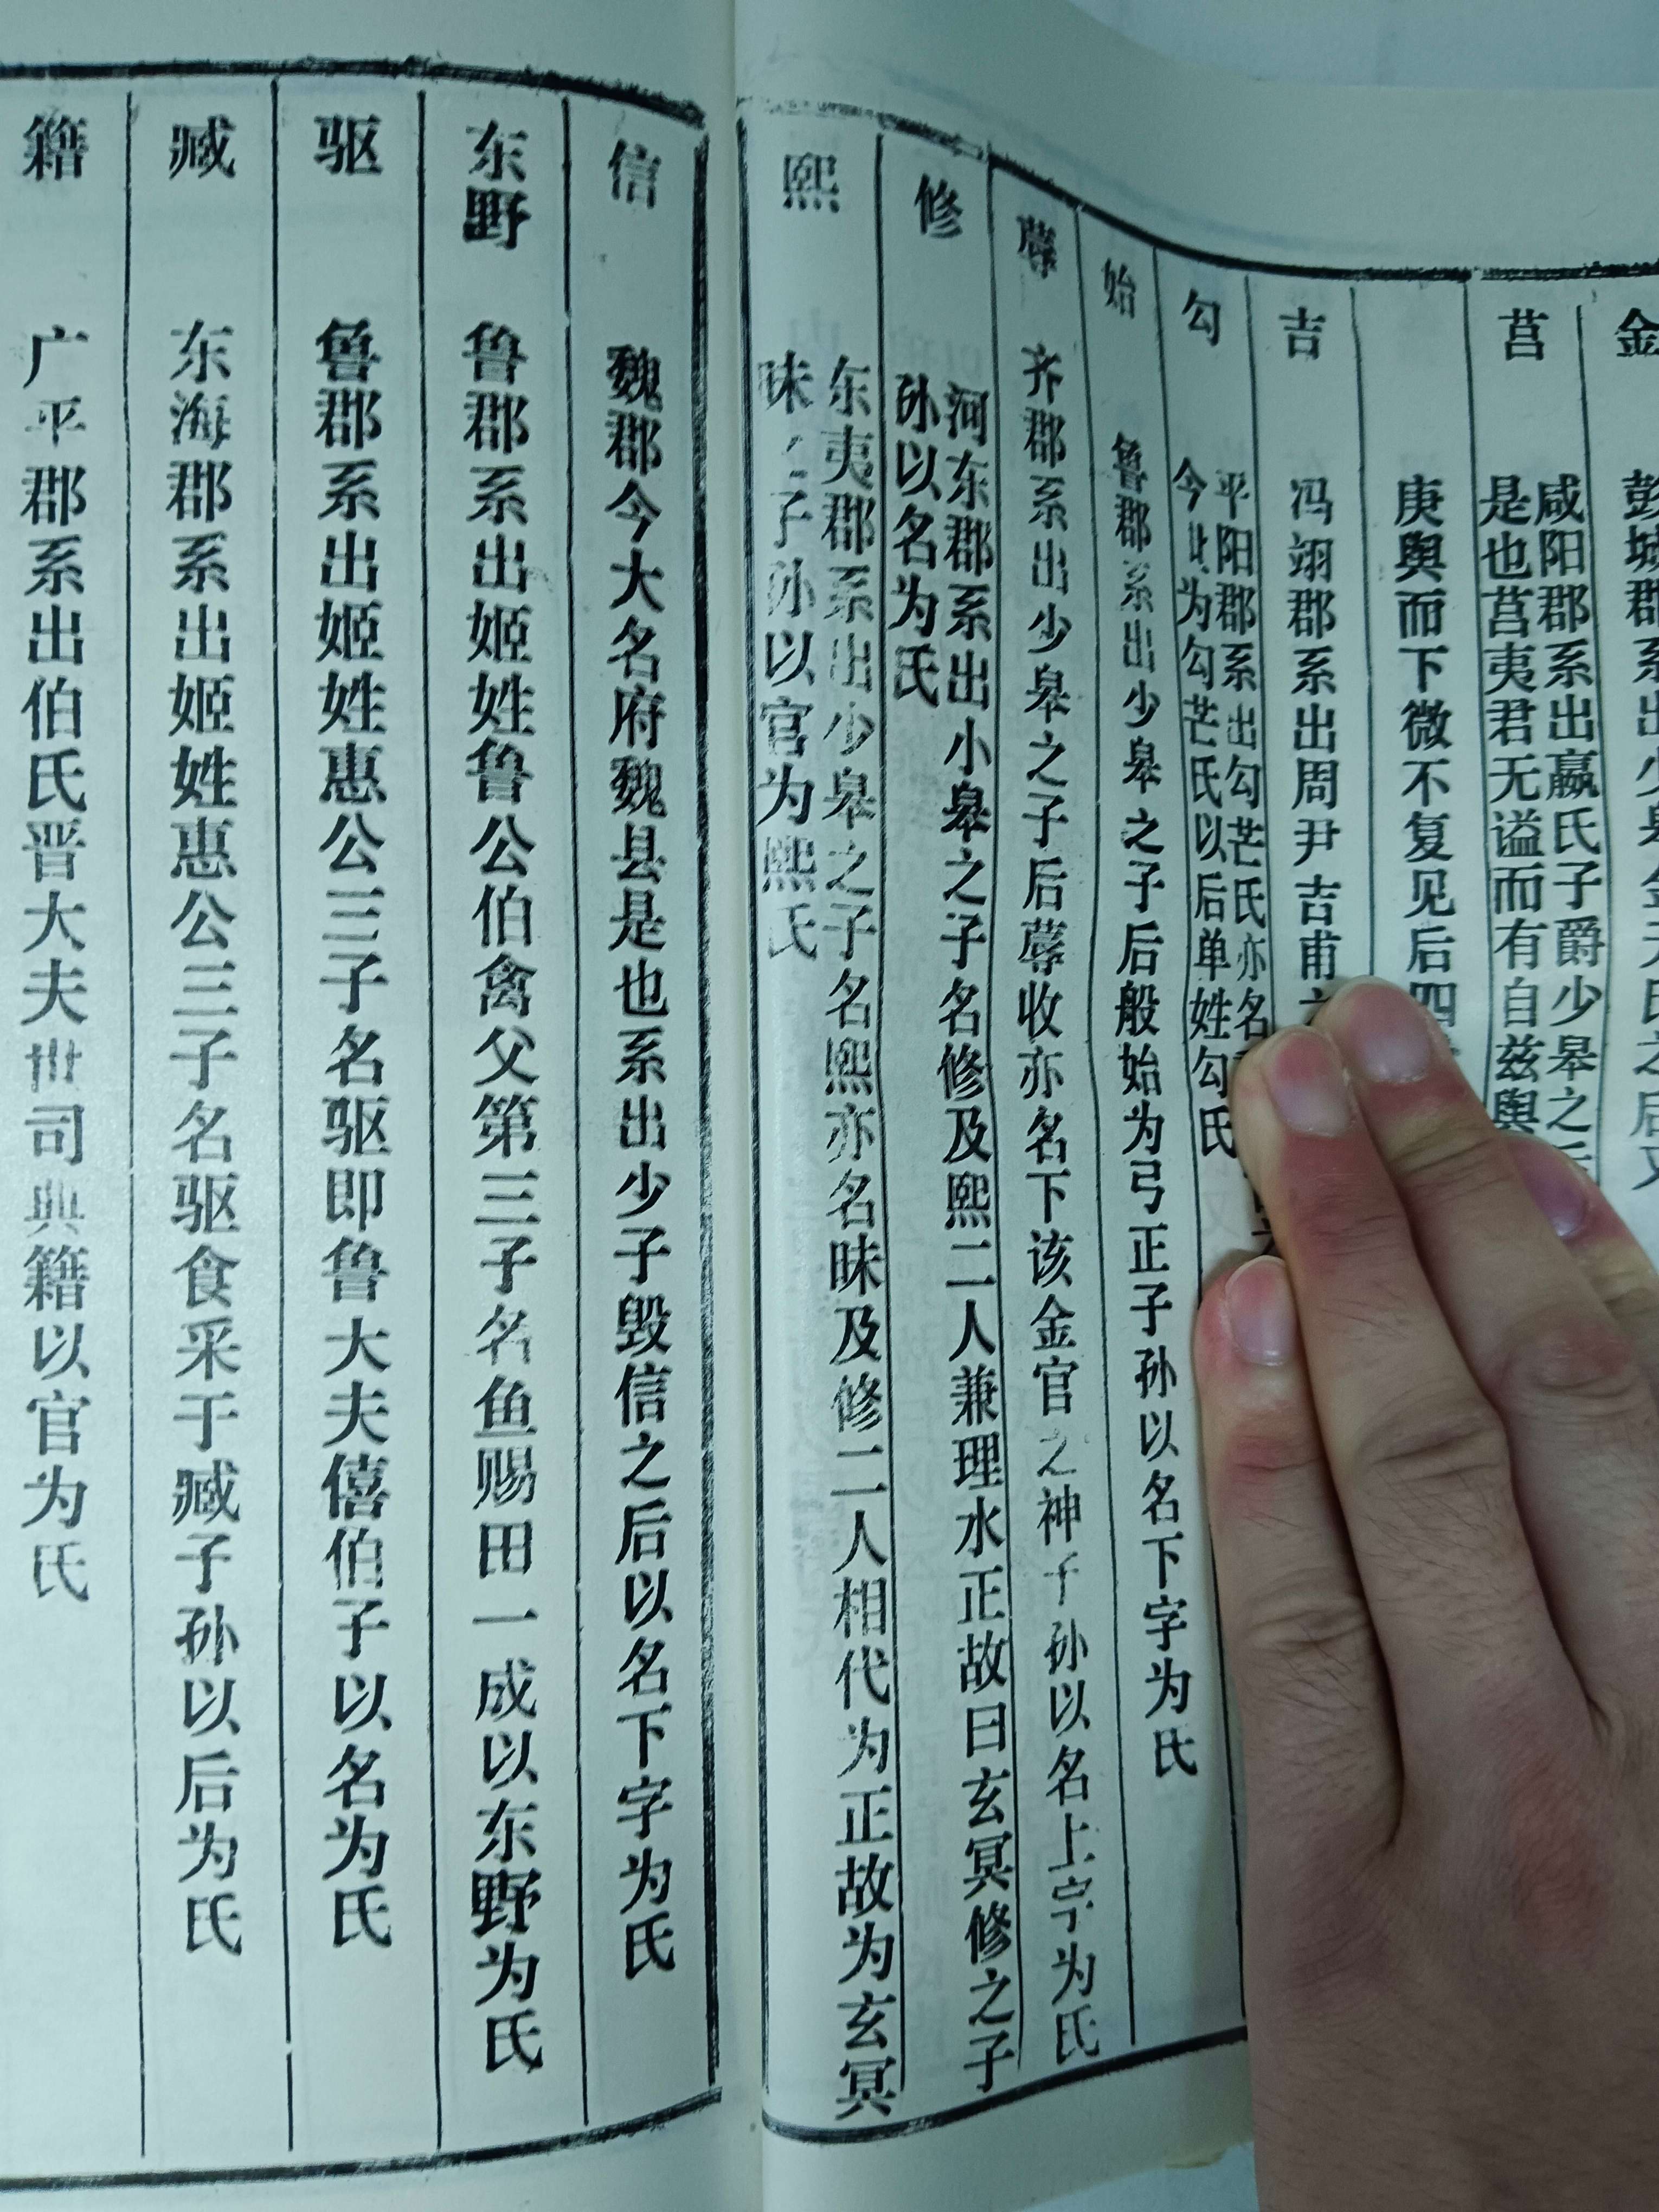 金
彭城郡系出少皋金天氏之后又
莒
咸阳郡系出嬴氏子爵少皋之后
是也莒夷君无谥而有自兹舆
庚舆而下微不复见后四
吉
冯翊郡系出周尹吉甫
勾
平阳郡系出勾芒氏亦名
今此为勾芒氏以后单姓勾氏
始
鲁郡系出少皋之子后般始为弓正子孙以名下字为氏
蓐
齐郡系出少皋之子后蓐收亦名下该金官之神子孙以名上字为氏
修
河东郡系出小皋之子名修及熙二人兼理水正故曰玄冥修之子
孙以名为氏
熙
东夷郡系出少皋之子名熙亦名昧及修二人相代为正故为玄冥
昧之子孙以官为熙氏
信
魏郡今大名府魏县是也系出少子毁信之后以名下字为氏
东野
鲁郡系出姬姓鲁公伯禽父第三子名鱼赐田一成以东野为氏
驱
鲁郡系出姬姓惠公三子名驱即鲁大夫僖伯子以名为氏
臧
东海郡系出姬姓惠公三子名驱食采于臧子孙以后为氏
籍
广平郡系出伯氏晋大夫世司典籍以官为氏